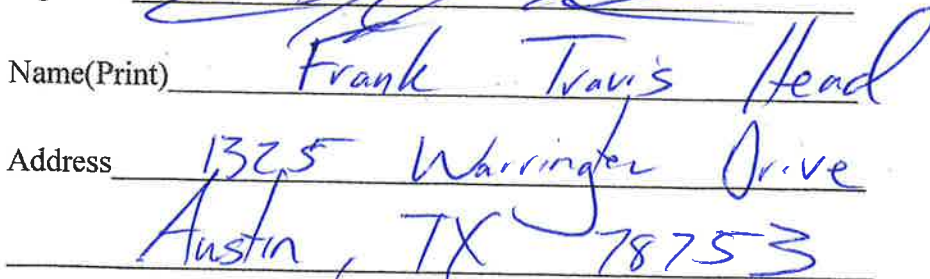 Name(Print) Frank Travis Head
Address 1325 Warrington Drive
Austin, TX 78753